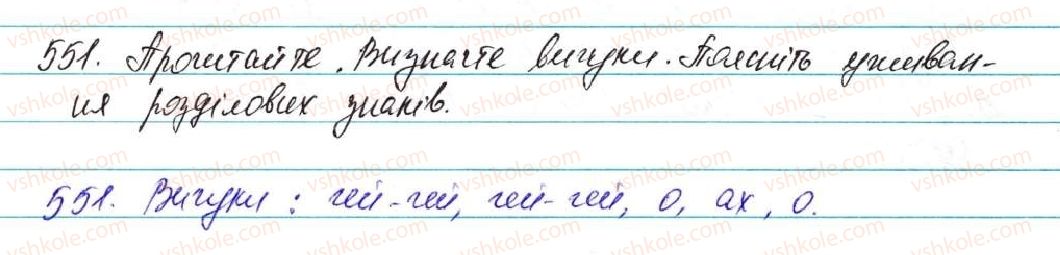 551. Прочитайте. Визначте вигуки. Поясніть уживан-
ня розділових знаків.
551. Вигуки: гей-гей, гей-гей, о, ах, о.